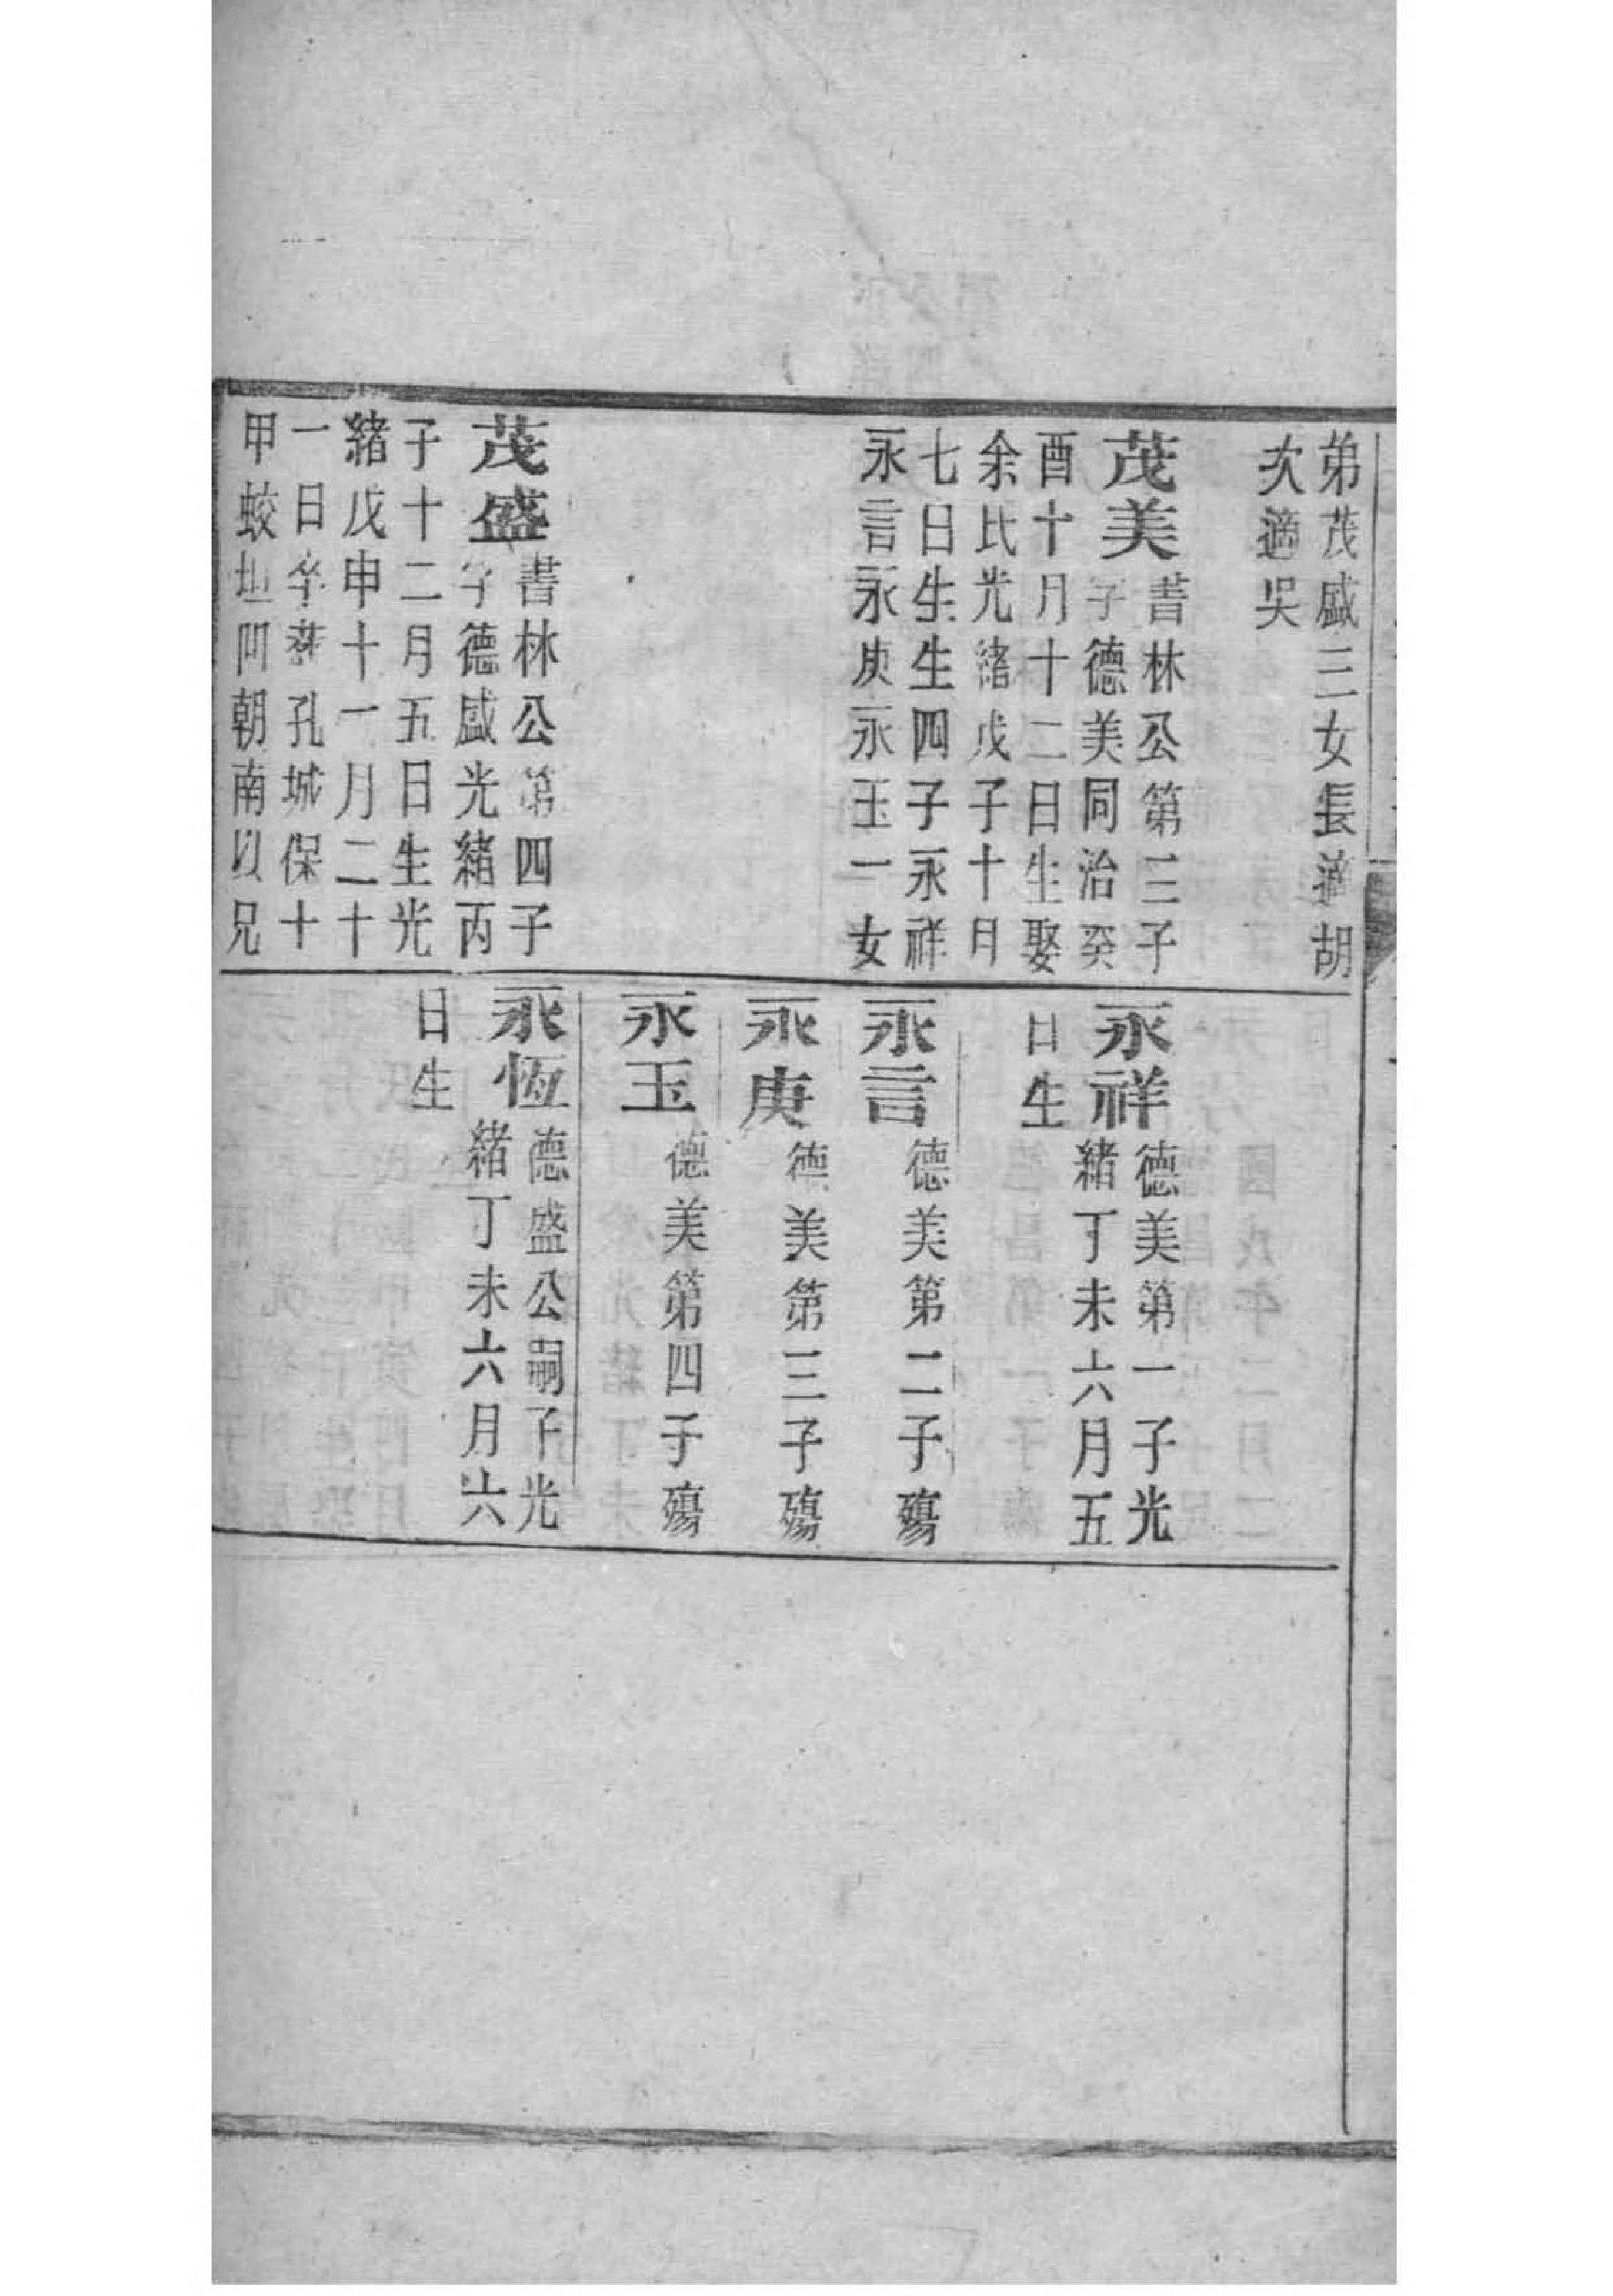 弟茂盛三女長適胡
次適吳
茂美
書林公第三子
字德美同治癸
酉十月十二日生娶
余氏光緒戊子十月
七日生生四子永祥
永言永庚永玉一女
茂盛
書林公第四子
字德盛光緒丙
子十二月五日生光
緒戊申十一月二十
一日卒葬孔城保十
甲蛟坦凹朝南以兄
永祥
德美第一子光
緒丁未六月五
日生
永言
德美第二子殤
永庚
德美第三子殤
永玉
德美第四子殤
永恆
德盛公嗣子光
緒丁未六月六
日生